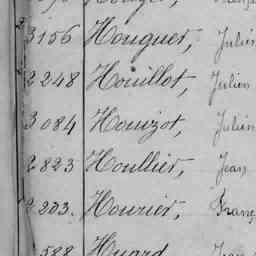 3156 Houguer, Julien
2248 Houillot, Julien
3084 Houizot, Julien
2823 Houllier, Jean
2203. Hourier, Franç
588 Huard